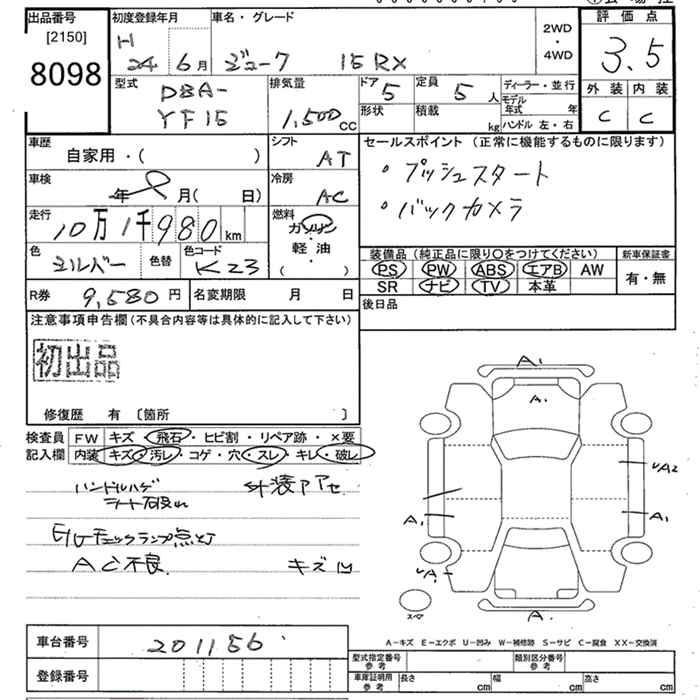 出品番号
[2150]
8098
初度登録年月
H
24 6月
車名・グレード
ジューク 15RX
2WD
・
4WD
評価点
3.5
外装 内装
C C
型式
DBA-
YF15
排気量
1,500cc
ドア
5
定員
5人
形状
積載
kg
ディーラー・並行
モデル年式
年
ハンドル 左・右
車歴
自家用・( )
シフト
AT
車検
年 月( 日)
冷房
AC
走行
10万1千980km
燃料
ガソリン
・
軽油
( )
色
シルバー
色替
色コード
K23
R券
9,580円
名変期限
月 日
セールスポイント(正常に機能するものに限ります)
・プッシュスタート
・バックカメラ
装備品(純正品に限り○をつけてください)
新車保証書
PS PW ABS エアB AW
SR ナビ TV 本革
有・無
後日品
注意事項申告欄(不具合内容等は具体的に記入して下さい)
初出品
修復歴 有 〔箇所 〕
検査員
記入欄
FW キズ・飛石・ヒビ割・リペア跡・×要
内装 キズ・汚レ・コゲ・穴・スレ・キレ・破レ
ハンドルハゲ
外装アアセ
E/Gチェックランプ点灯
AC不良
キズ凹
A1
A.
A1
A1
A.
スペア
A-キズ E-エクボ U-凹み W-補修跡 S-サビ C-腐食 XX-交換済
車台番号
201156
登録番号
型式指定番号
参考
類別区分番号
参考
車庫証明用
参考
長さ
cm
幅
cm
高さ
cm